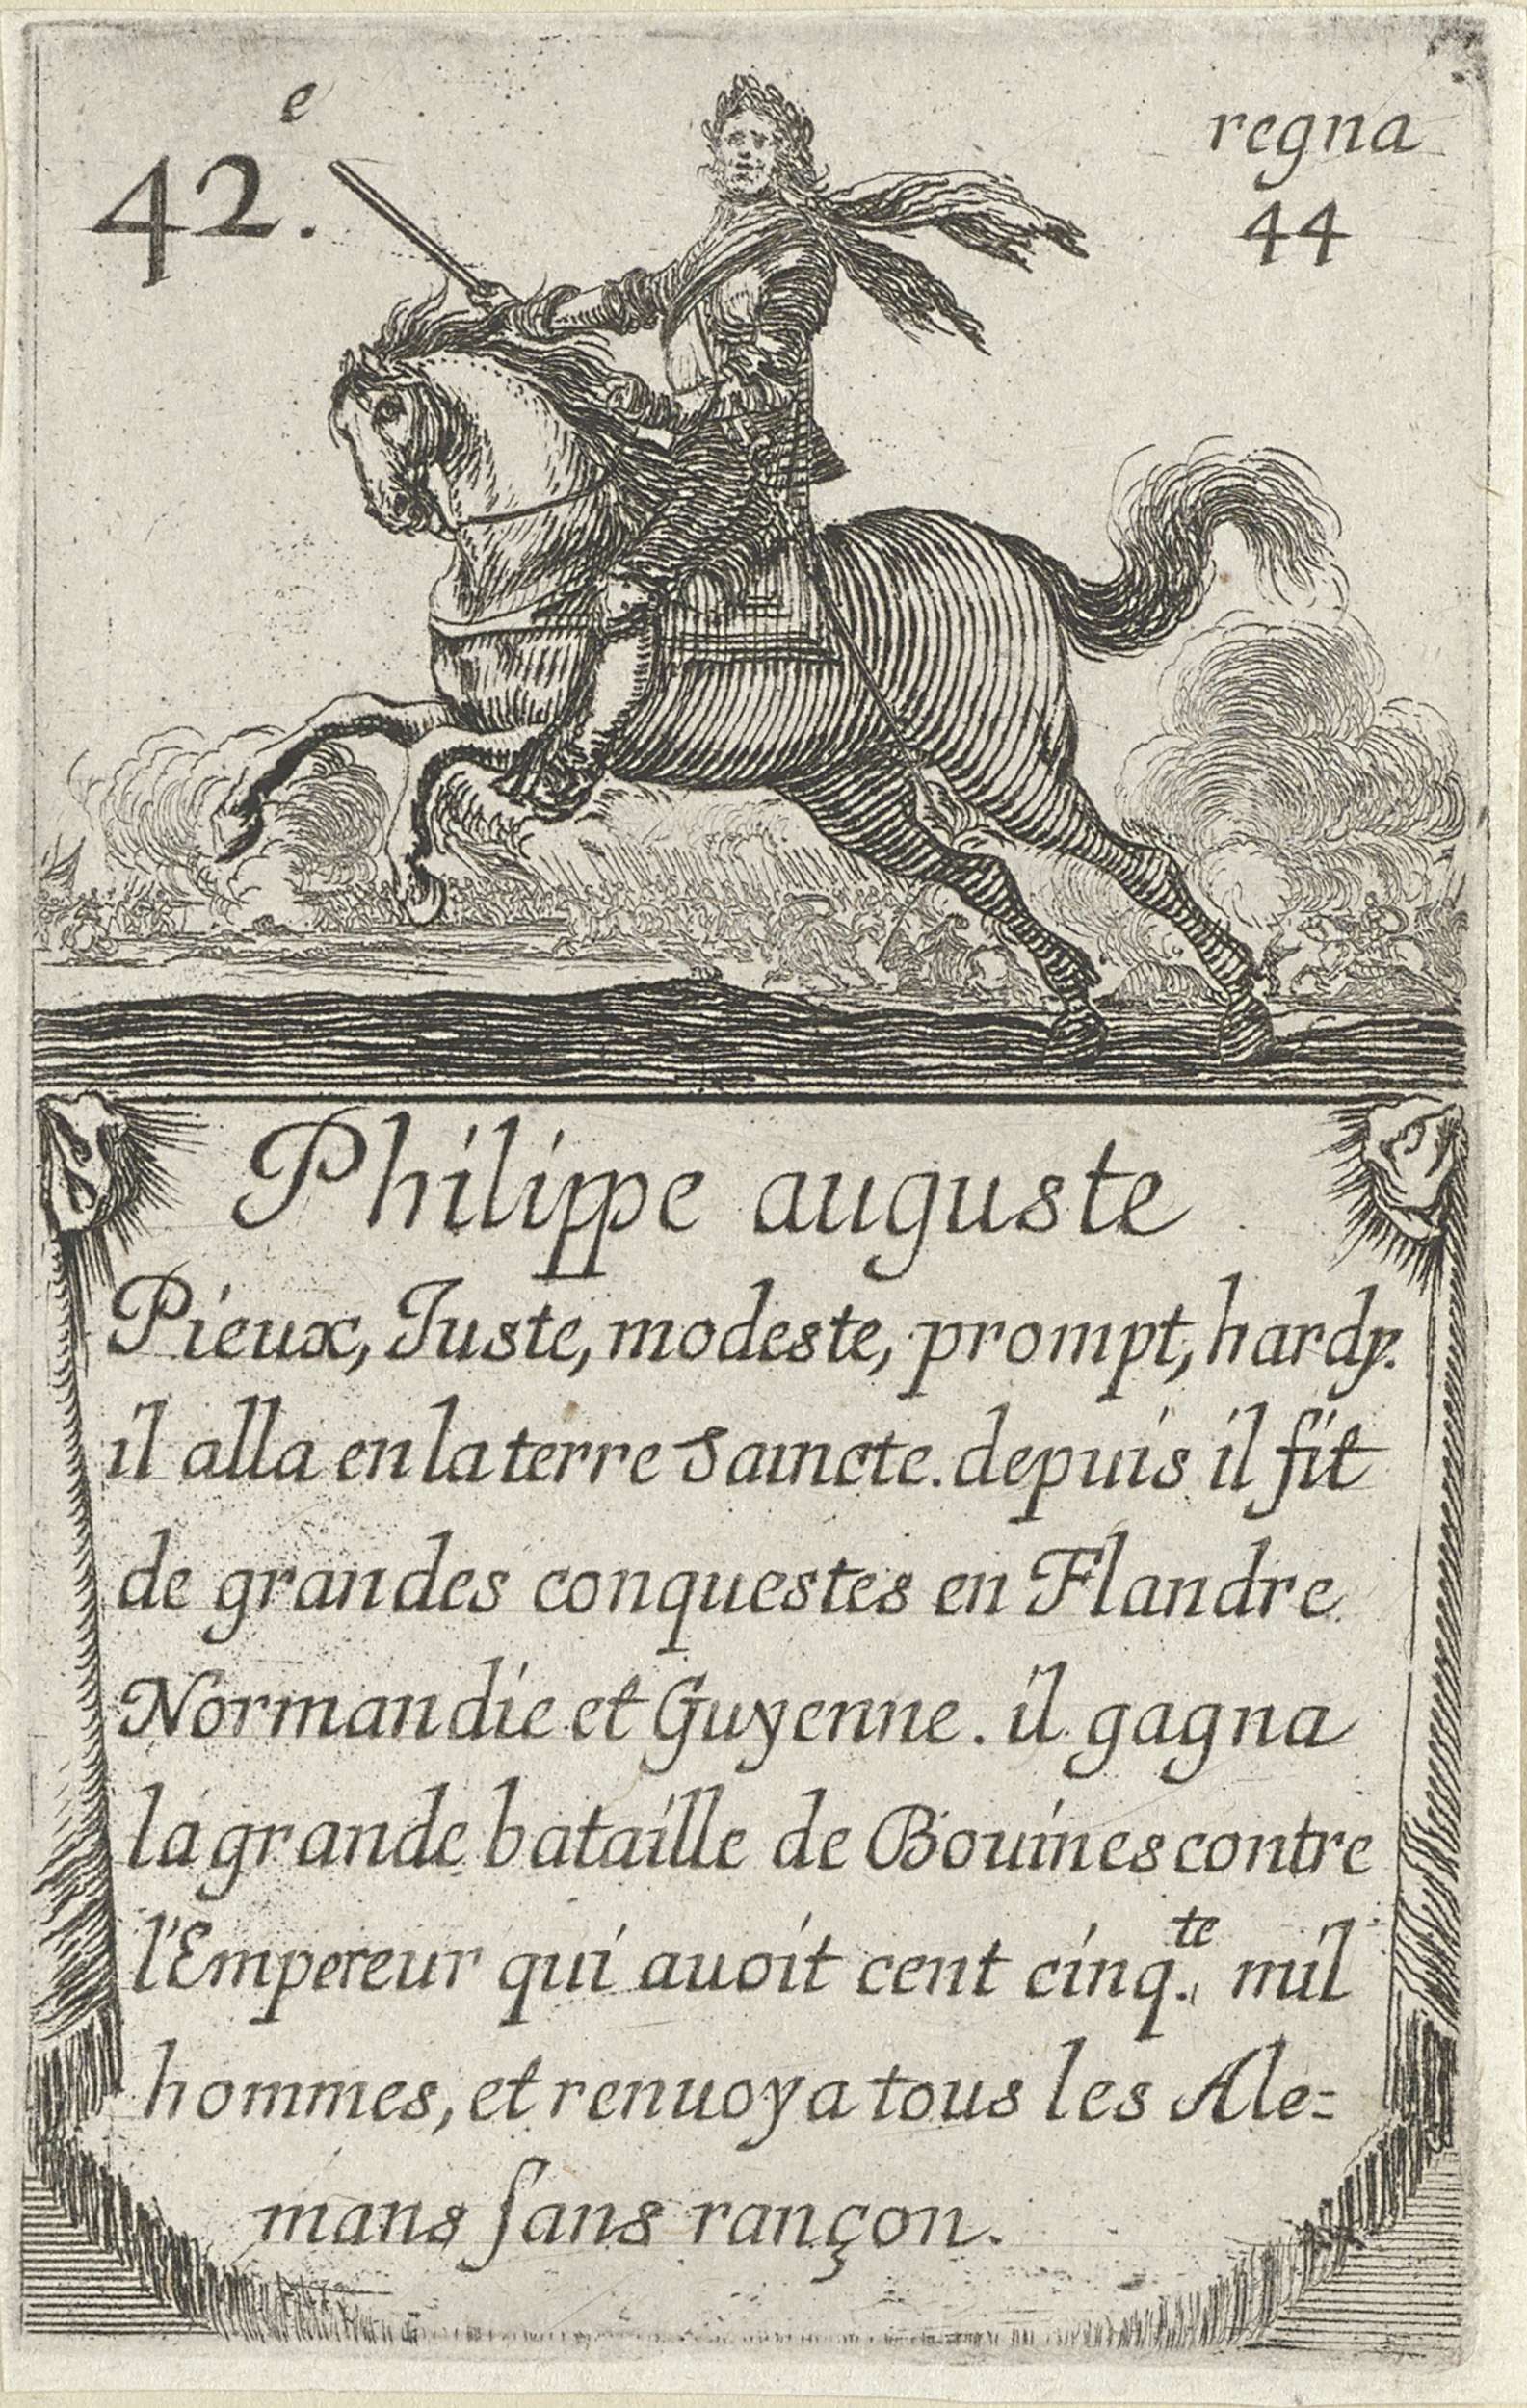 42.e
regna
44
Philippe auguste
Pieux, Juste, modeste, prompt, hardy.
il alla en la terre Saincte. depuis il fit
de grandes conquestes en Flandre
Normandie et Guyenne. il gagna
la grande bataille de Bouines contre
l'Empereur qui auoit cent cinq.te mil
hommes, et renuoya tous les Ale=
mans ſans rançon.